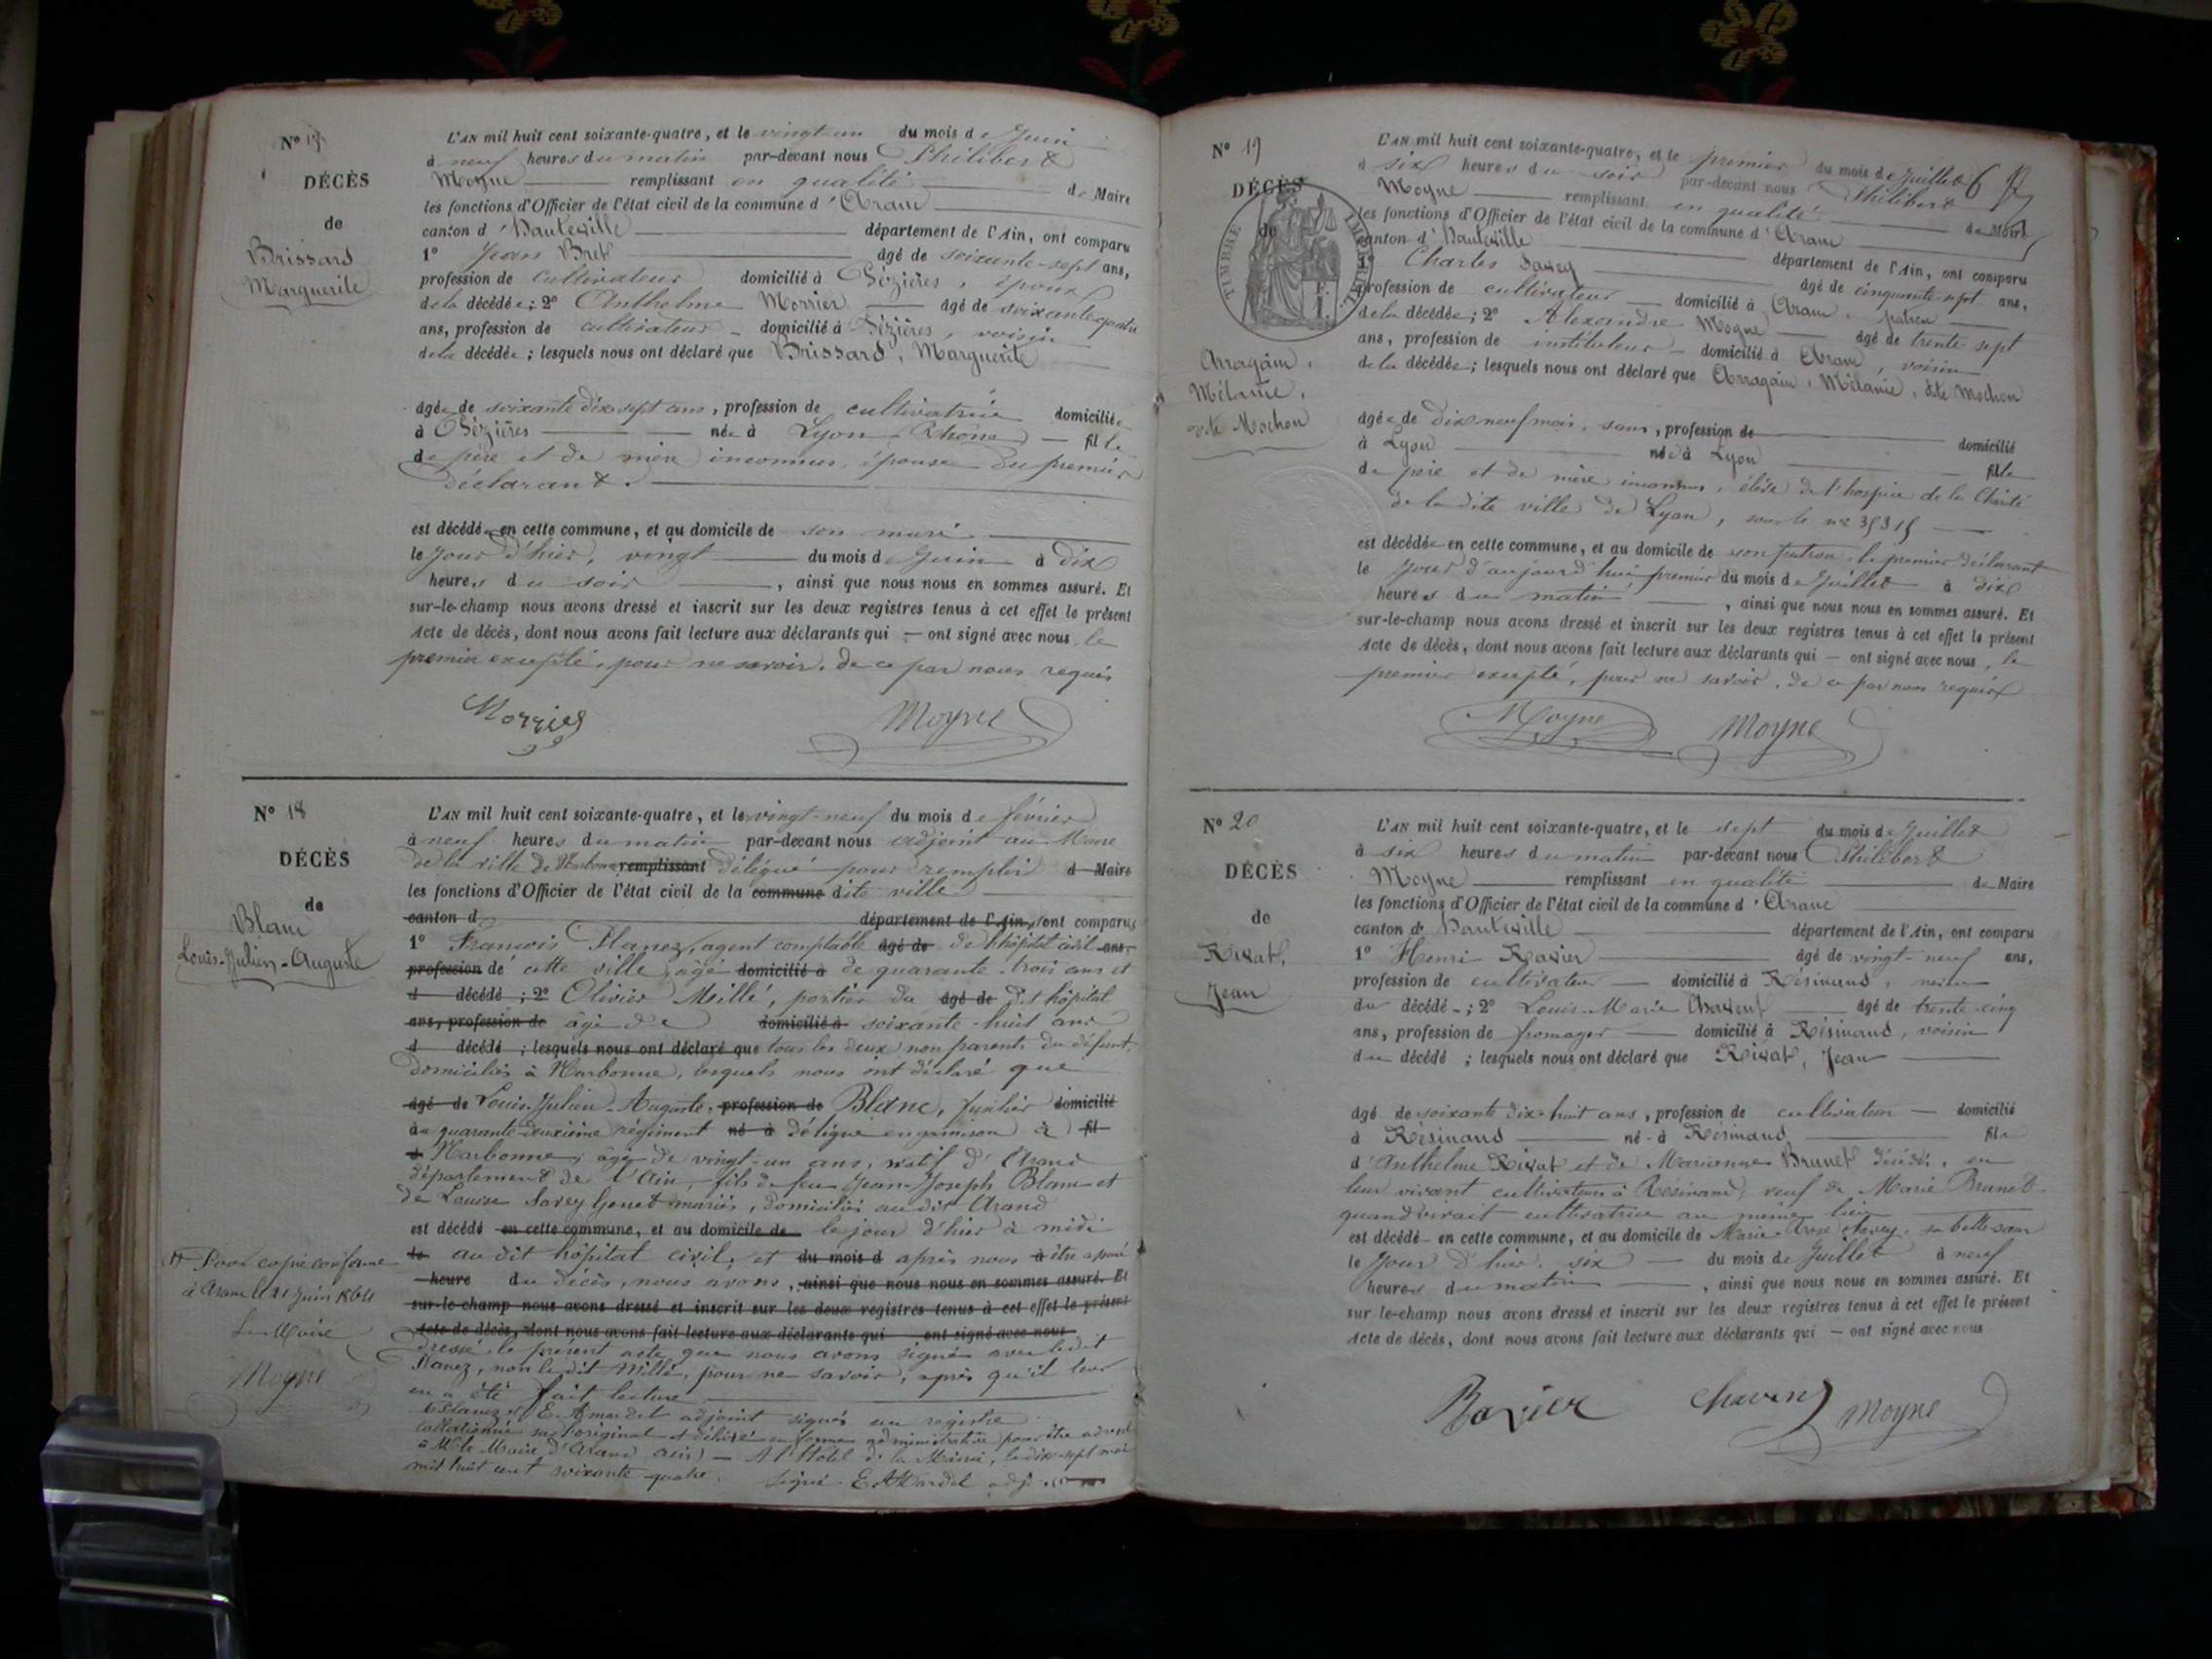 N° 17
DÉCÈS
de
Brissard
Marguerite
L'AN mil huit cent soixante-quatre, et le vingt-un du mois de Juin
à neuf heures du matin par-devant nous Philibert
Moyne remplissant en qualité de Maire
les fonctions d'Officier de l'état civil de la commune d'Aranc
canton d'Hauteville département de l'Ain, ont comparu
1° Jean Bret âgé de soixante-sept ans,
profession de cultivateur domicilié à Pézières, époux
de la décédée; 2° Anthelme Morrier âgé de soixante quatre
ans, profession de cultivateur domicilié à Pézières, voisin
de la décédée; lesquels nous ont déclaré que Brissard, Marguerite
âgée de soixante dix sept ans, profession de cultivatrice domiciliée
à Pézières née à Lyon (Rhône) fille
de père et de mère inconnus, épouse du premier
déclarant.
est décédée en cette commune, et au domicile de son mari
le jour d'hier, vingt du mois de Juin à dix
heures du soir, ainsi que nous nous en sommes assuré. Et
sur-le-champ nous avons dressé et inscrit sur les deux registres tenus à cet effet le présent
Acte de décès, dont nous avons fait lecture aux déclarants qui — ont signé avec nous, le
premier excepté, pour ne savoir, de ce par nous requis
Morrier Moyne
N° 18
DÉCÈS
de
Blanc
Louis-Julien-Auguste
L'AN mil huit cent soixante-quatre, et le vingt-neuf du mois de février
à neuf heures du matin par-devant nous adjoint au Maire
de la ville de Narbonne remplissant délégué pour remplir d Maire
les fonctions d'Officier de l'état civil de la commune dite ville
canton d département de l'Ain, ont comparus
1° François Planez, agent comptable âgé de de l'hôpital civil ans,
profession de cette ville, âgé domicilié à de quarante-trois ans et
d décédé; 2° Olivier Meillé, portier du âgé de dit hôpital
ans, profession de âgé de domicilié à soixante-huit ans
d décédé; lesquels nous ont déclaré que tous les deux non parents du défunt,
domiciliés à Narbonne, lesquels nous ont déclaré que
âgé de Louis-Julien-Auguste, profession de Blanc, fusilier domicilié
au quarante-deuxième régiment né à de ligne en garnison à fil
d Narbonne, âgé de vingt-un ans, natif d'Arand
département de l'Ain, fils de feu Jean-Joseph Blanc et
de Louise Savey Genet mariés, domiciliés au dit Arand
est décédé en cette commune, et au domicile de le jour d'hier à midi
le au dit hôpital civil, et du mois d après nous à être assuré
heure du décès, nous avons, ainsi que nous nous en sommes assuré. Et
sur-le-champ nous avons dressé et inscrit sur les deux registres tenus à cet effet le présent
Acte de décès, dont nous avons fait lecture aux déclarants qui ont signé avec nous
dressé le présent acte que nous avons signé avec le dit
Planez, non le dit Meillé, pour ne savoir, après qu'il leur
en a été fait lecture
adjoint signés au registre
collationné sur l'original et délivré en forme administrative pour être adressé
à M. le Maire d'Arand (Ain) — A l'Hôtel de la Mairie, le dix-sept mai
mil huit cent soixante-quatre. Signé
Pour copie conforme
à Aranc le 21 Juin 1864
Le Maire
Moyne
N° 19
DÉCÈS
de
TIMBRE IMPÉRIAL
Arragain,
Mélanie,
dite Mochon
L'AN mil huit cent soixante-quatre, et le premier du mois de Juillet
à six heures du soir par-devant nous Philibert
Moyne remplissant en qualité de Maire
les fonctions d'Officier de l'état civil de la commune d'Aranc
canton d'Hauteville département de l'Ain, ont comparu
1° Charles Savey âgé de cinquante-sept ans,
profession de cultivateur domicilié à Aranc, patron
de la décédée; 2° Alexandre Moyne âgé de trente-sept
ans, profession de instituteur domicilié à Aranc, voisin
de la décédée; lesquels nous ont déclaré que Arragain, Mélanie, dite Mochon
âgée de dix neuf mois, sans, profession de domicilié
à Lyon née à Lyon fille
de père et de mère inconnus, élève de l'hospice de la Charité
de la dite ville de Lyon, sous le n°
est décédée en cette commune, et au domicile de son patron le premier déclarant
le jour d'aujourd'hui premier du mois de Juillet à dix
heures du matin, ainsi que nous nous en sommes assuré. Et
sur-le-champ nous avons dressé et inscrit sur les deux registres tenus à cet effet le présent
Acte de décès, dont nous avons fait lecture aux déclarants qui — ont signé avec nous, le
premier excepté, pour ne savoir, de ce par nous requis
Moyne Moyne
N° 20
DÉCÈS
de
Rivat,
Jean
L'AN mil huit cent soixante-quatre, et le sept du mois de Juillet
à six heures du matin par-devant nous Philibert
Moyne remplissant en qualité de Maire
les fonctions d'Officier de l'état civil de la commune d'Aranc
canton d' Hauteville département de l'Ain, ont comparu
1° Henri Ravier âgé de vingt-neuf ans,
profession de cultivateur domicilié à Résinand, neveu
du décédé; 2° Louis-Marie Chavent âgé de trente-cinq
ans, profession de fromager domicilié à Résinand, voisin
du décédé; lesquels nous ont déclaré que Rivat, Jean
âgé de soixante dix-huit ans, profession de cultivateur domicilié
à Résinand né à Résinand fils
d'Anthelme Rivat et de Marianne Brunet décédés, en
leur vivant cultivateurs à Résinand, veuf de Marie Brunet
quand vivait cultivatrice au même lieu
est décédé en cette commune, et au domicile de Marie Savey, sa belle-sœur
le jour d'hier, six du mois de Juillet à neuf
heures du matin, ainsi que nous nous en sommes assuré. Et
sur-le-champ nous avons dressé et inscrit sur les deux registres tenus à cet effet le présent
Acte de décès, dont nous avons fait lecture aux déclarants qui — ont signé avec nous
Ravier Chavent Moyne